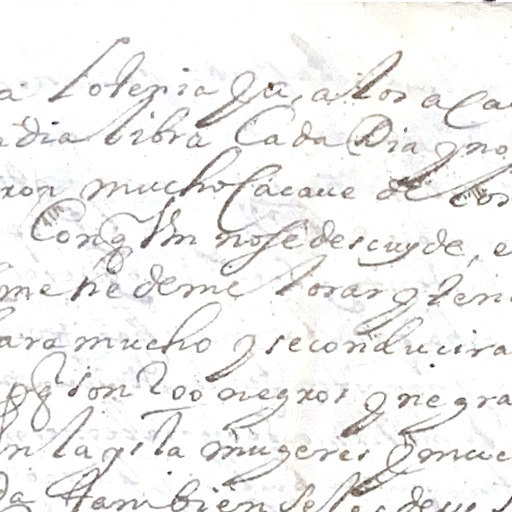 a lo tenia q̃ a, a los aca
dia libra Cada Dia y no
ron mucho Cacaue de los
Conq̃ Vm no se descuyde, e
me he deme lorar y ten
hara mucho y se conducira
pq̃ son 200 negros y negra
nta y sta mugeres y muc
da tambien se